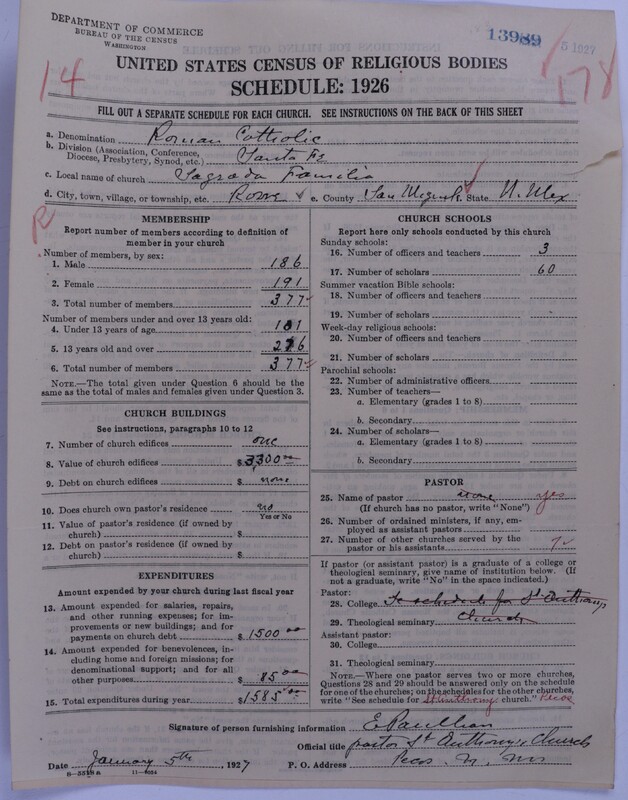 DEPARTMENT OF COMMERCE
BUREAU OF THE CENSUS
WASHINGTON
13989
5 1927
14
178
UNITED STATES CENSUS OF RELIGIOUS BODIES
SCHEDULE: 1926
FILL OUT A SEPARATE SCHEDULE FOR EACH CHURCH. SEE INSTRUCTIONS ON THE BACK OF THIS SHEET
a. Denomination Roman Catholic
b. Division (Association, Conference, Diocese, Presbytery, Synod, etc.) Santa Fe
c. Local name of church Sagrada Familia
d. City, town, village, or township, etc. Rowe e. County San Miguel State N. Mex
R
MEMBERSHIP
Report number of members according to definition of
member in your church
Number of members, by sex:
1. Male 186
2. Female 191
3. Total number of members 377
Number of members under and over 13 years old:
4. Under 13 years of age 181
5. 13 years old and over
6. Total number of members 377
NOTE.—The total given under Question 6 should be
same as the total of males and females given under Question 3.
CHURCH BUILDINGS
See instructions, paragraphs 10 to 12
7. Number of church edifices one
8. Value of church edifices $3300.00
9. Debt on church edifices $ none
10. Does church own pastor's residence no
Yes or No
11. Value of pastor's residence (if owned by
church) $
12. Debt on pastor's residence (if owned by
church) $
EXPENDITURES
Amount expended by your church during last fiscal year
13. Amount expended for salaries, repairs,
and other running expenses; for im-
provements or new buildings; and for
payments on church debt $1500.00
14. Amount expended for benevolences, in-
cluding home and foreign missions; for
denominational support; and for all
other purposes $85.00
15. Total expenditures during year $1585.00
CHURCH SCHOOLS
Report here only schools conducted by this church
Sunday schools:
16. Number of officers and teachers 3
17. Number of scholars 60
Summer vacation Bible schools:
18. Number of officers and teachers
19. Number of scholars
Week-day religious schools:
20. Number of officers and teachers
21. Number of scholars
Parochial schools:
22. Number of administrative officers
23. Number of teachers—
a. Elementary (grades 1 to 8)
b. Secondary
24. Number of scholars—
a. Elementary (grades 1 to 8)
b. Secondary
PASTOR
25. Name of pastor none yes
(If church has no pastor, write "None")
26. Number of ordained ministers, if any, em-
ployed as assistant pastors
27. Number of other churches served by the
pastor or his assistants 7
If pastor (or assistant pastor) is a graduate of a college or
theological seminary, give name of institution below. (If
not a graduate, write "No" in the space indicated.)
Pastor:
28. College schedule for St Anthony's
29. Theological seminary Church
Assistant pastor:
30. College
31. Theological seminary
NOTE.—Where one pastor serves two or more churches,
Questions 28 and 29 should be answered only on the schedule
for one of the churches; on the schedules for the other churches,
write "See schedule for St. Anthony church." Pecos
Signature of person furnishing information E Paulhan
Official title pastor St Anthony's Church
Date January 5th, 1927 P. O. Address Pecos N. Mex